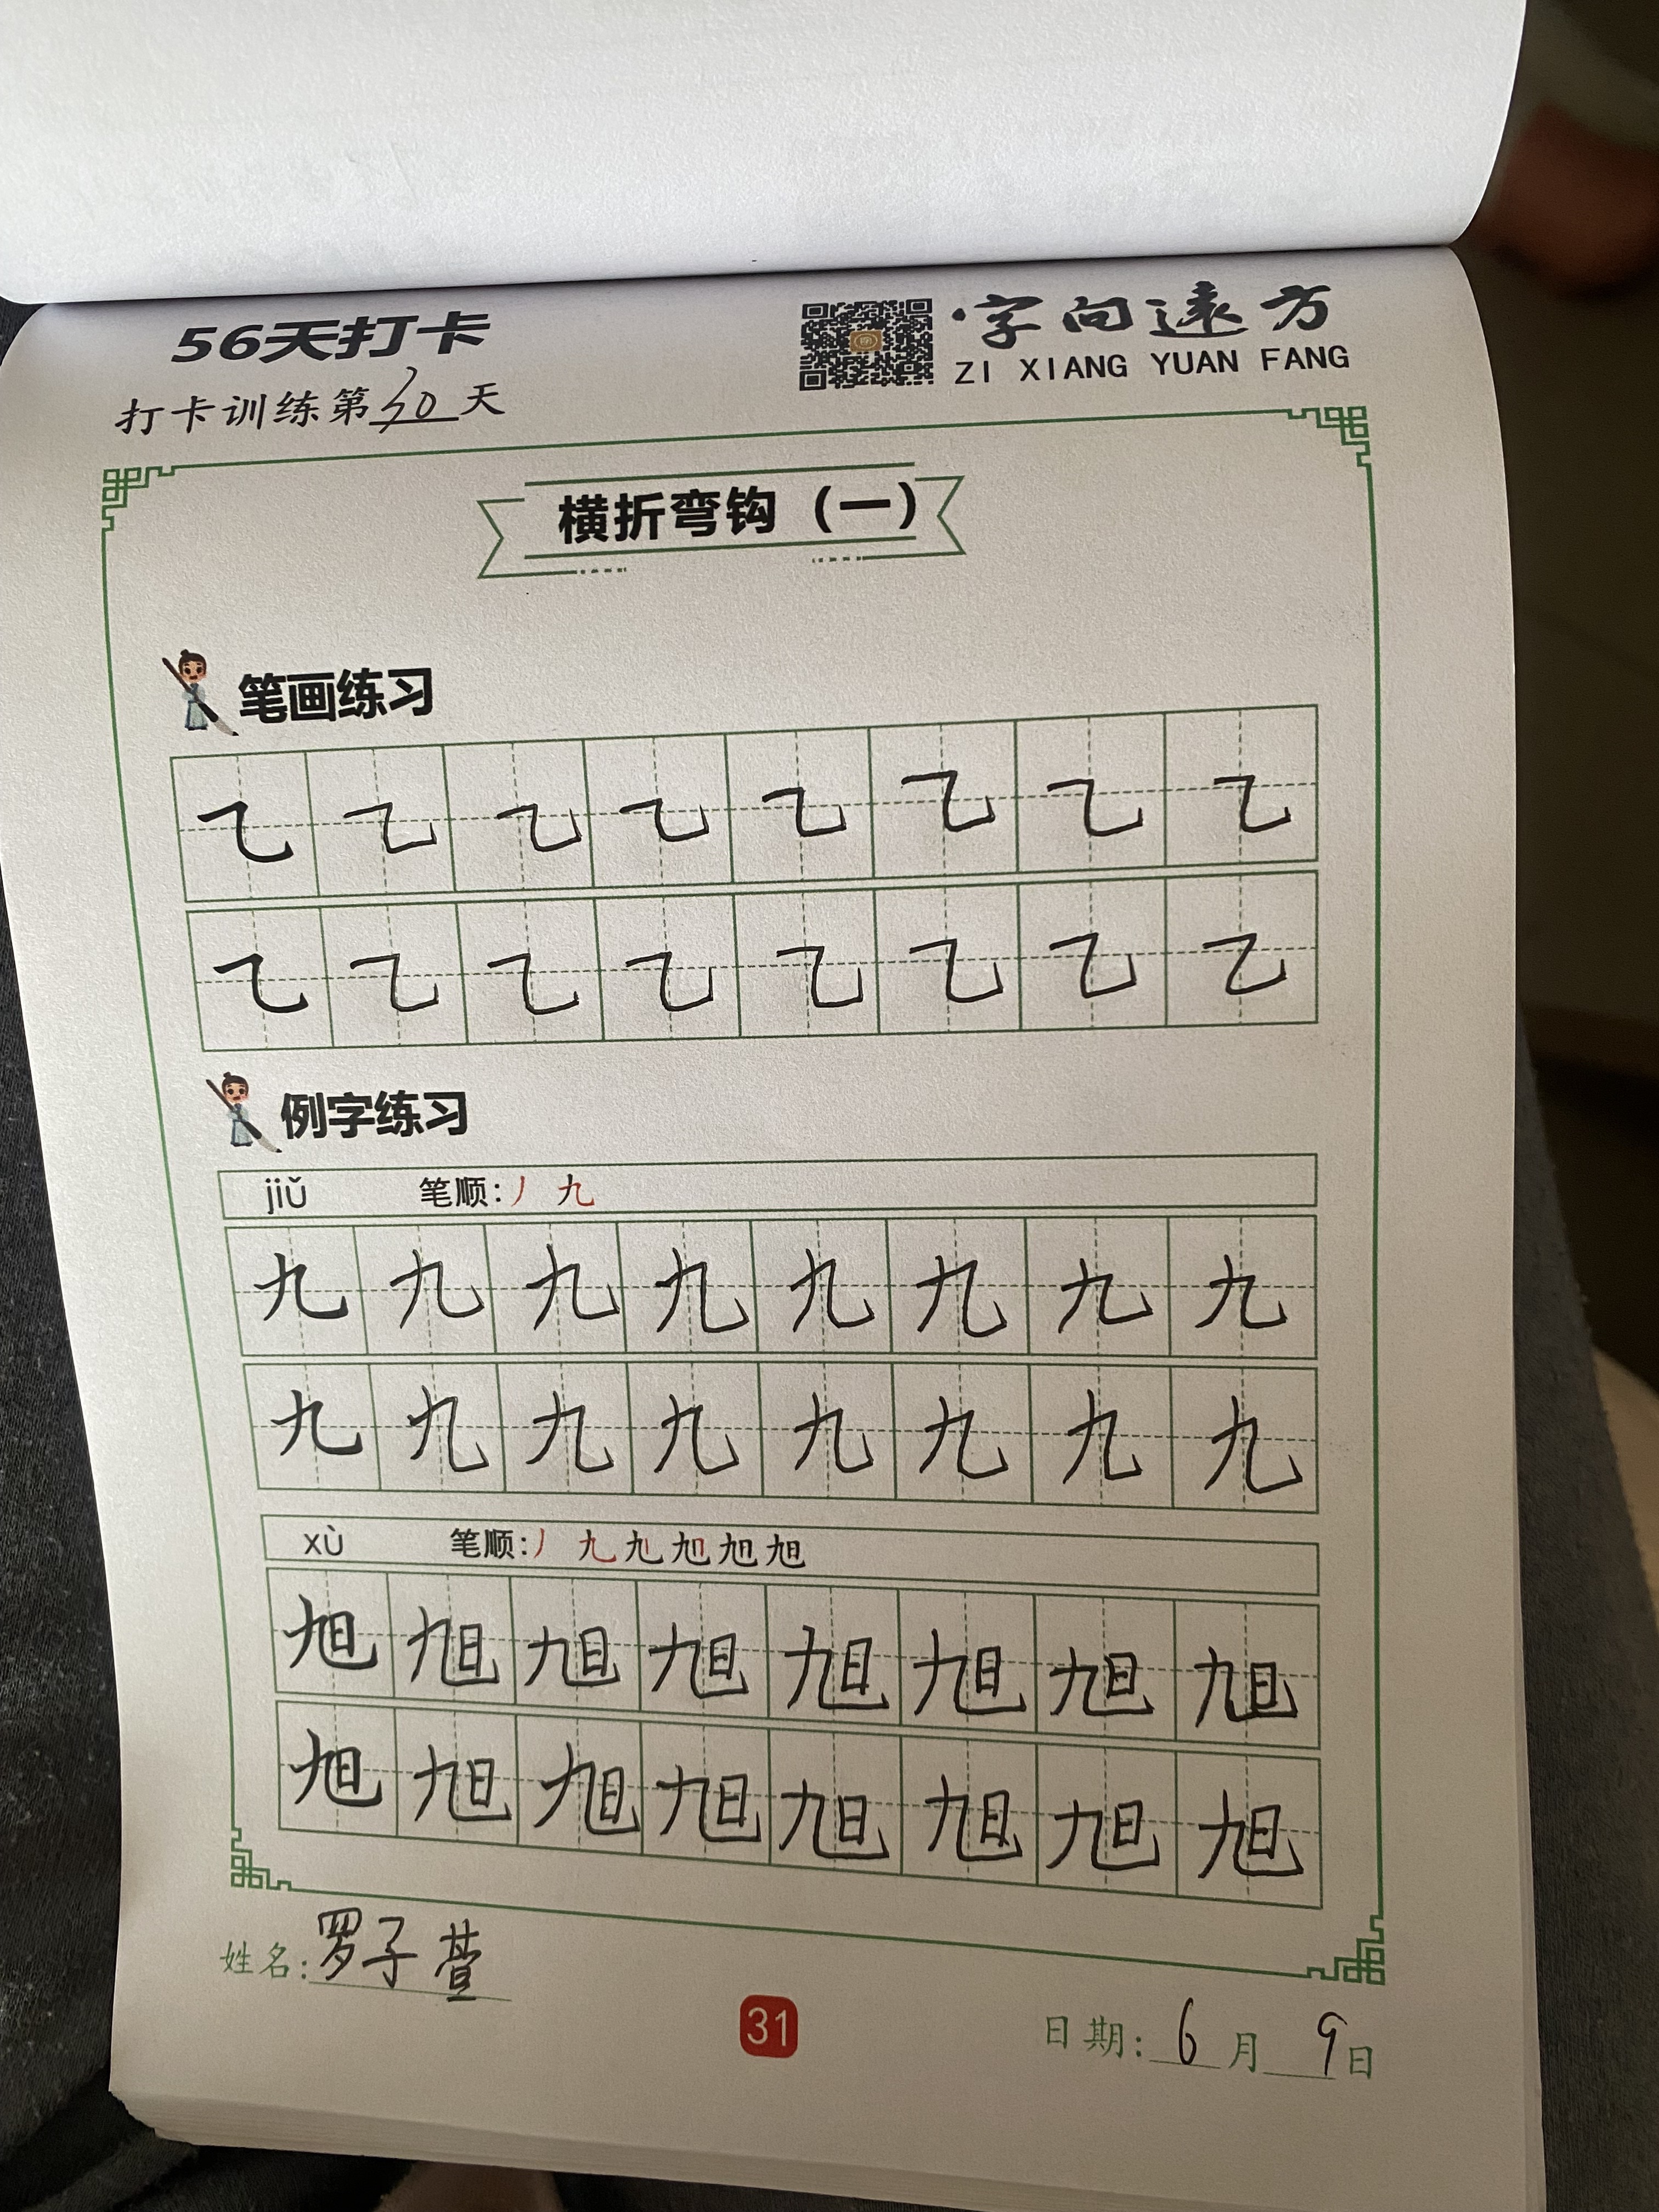 56天打卡
字向远方
ZI XIANG YUAN FANG
打卡训练第30天
横折弯钩（一）
笔画练习
㇈ ㇈ ㇈ ㇈ ㇈ ㇈ ㇈ ㇈
㇈ ㇈ ㇈ ㇈ ㇈ ㇈ ㇈ ㇈
例字练习
jiǔ 笔顺:丿 九
九 九 九 九 九 九 九 九
九 九 九 九 九 九 九 九
xù 笔顺:丿 九
旭 旭 旭 旭 旭 旭 旭 旭
旭 旭 旭 旭 旭 旭 旭 旭
姓名:罗子萱
31
日期:6月9日